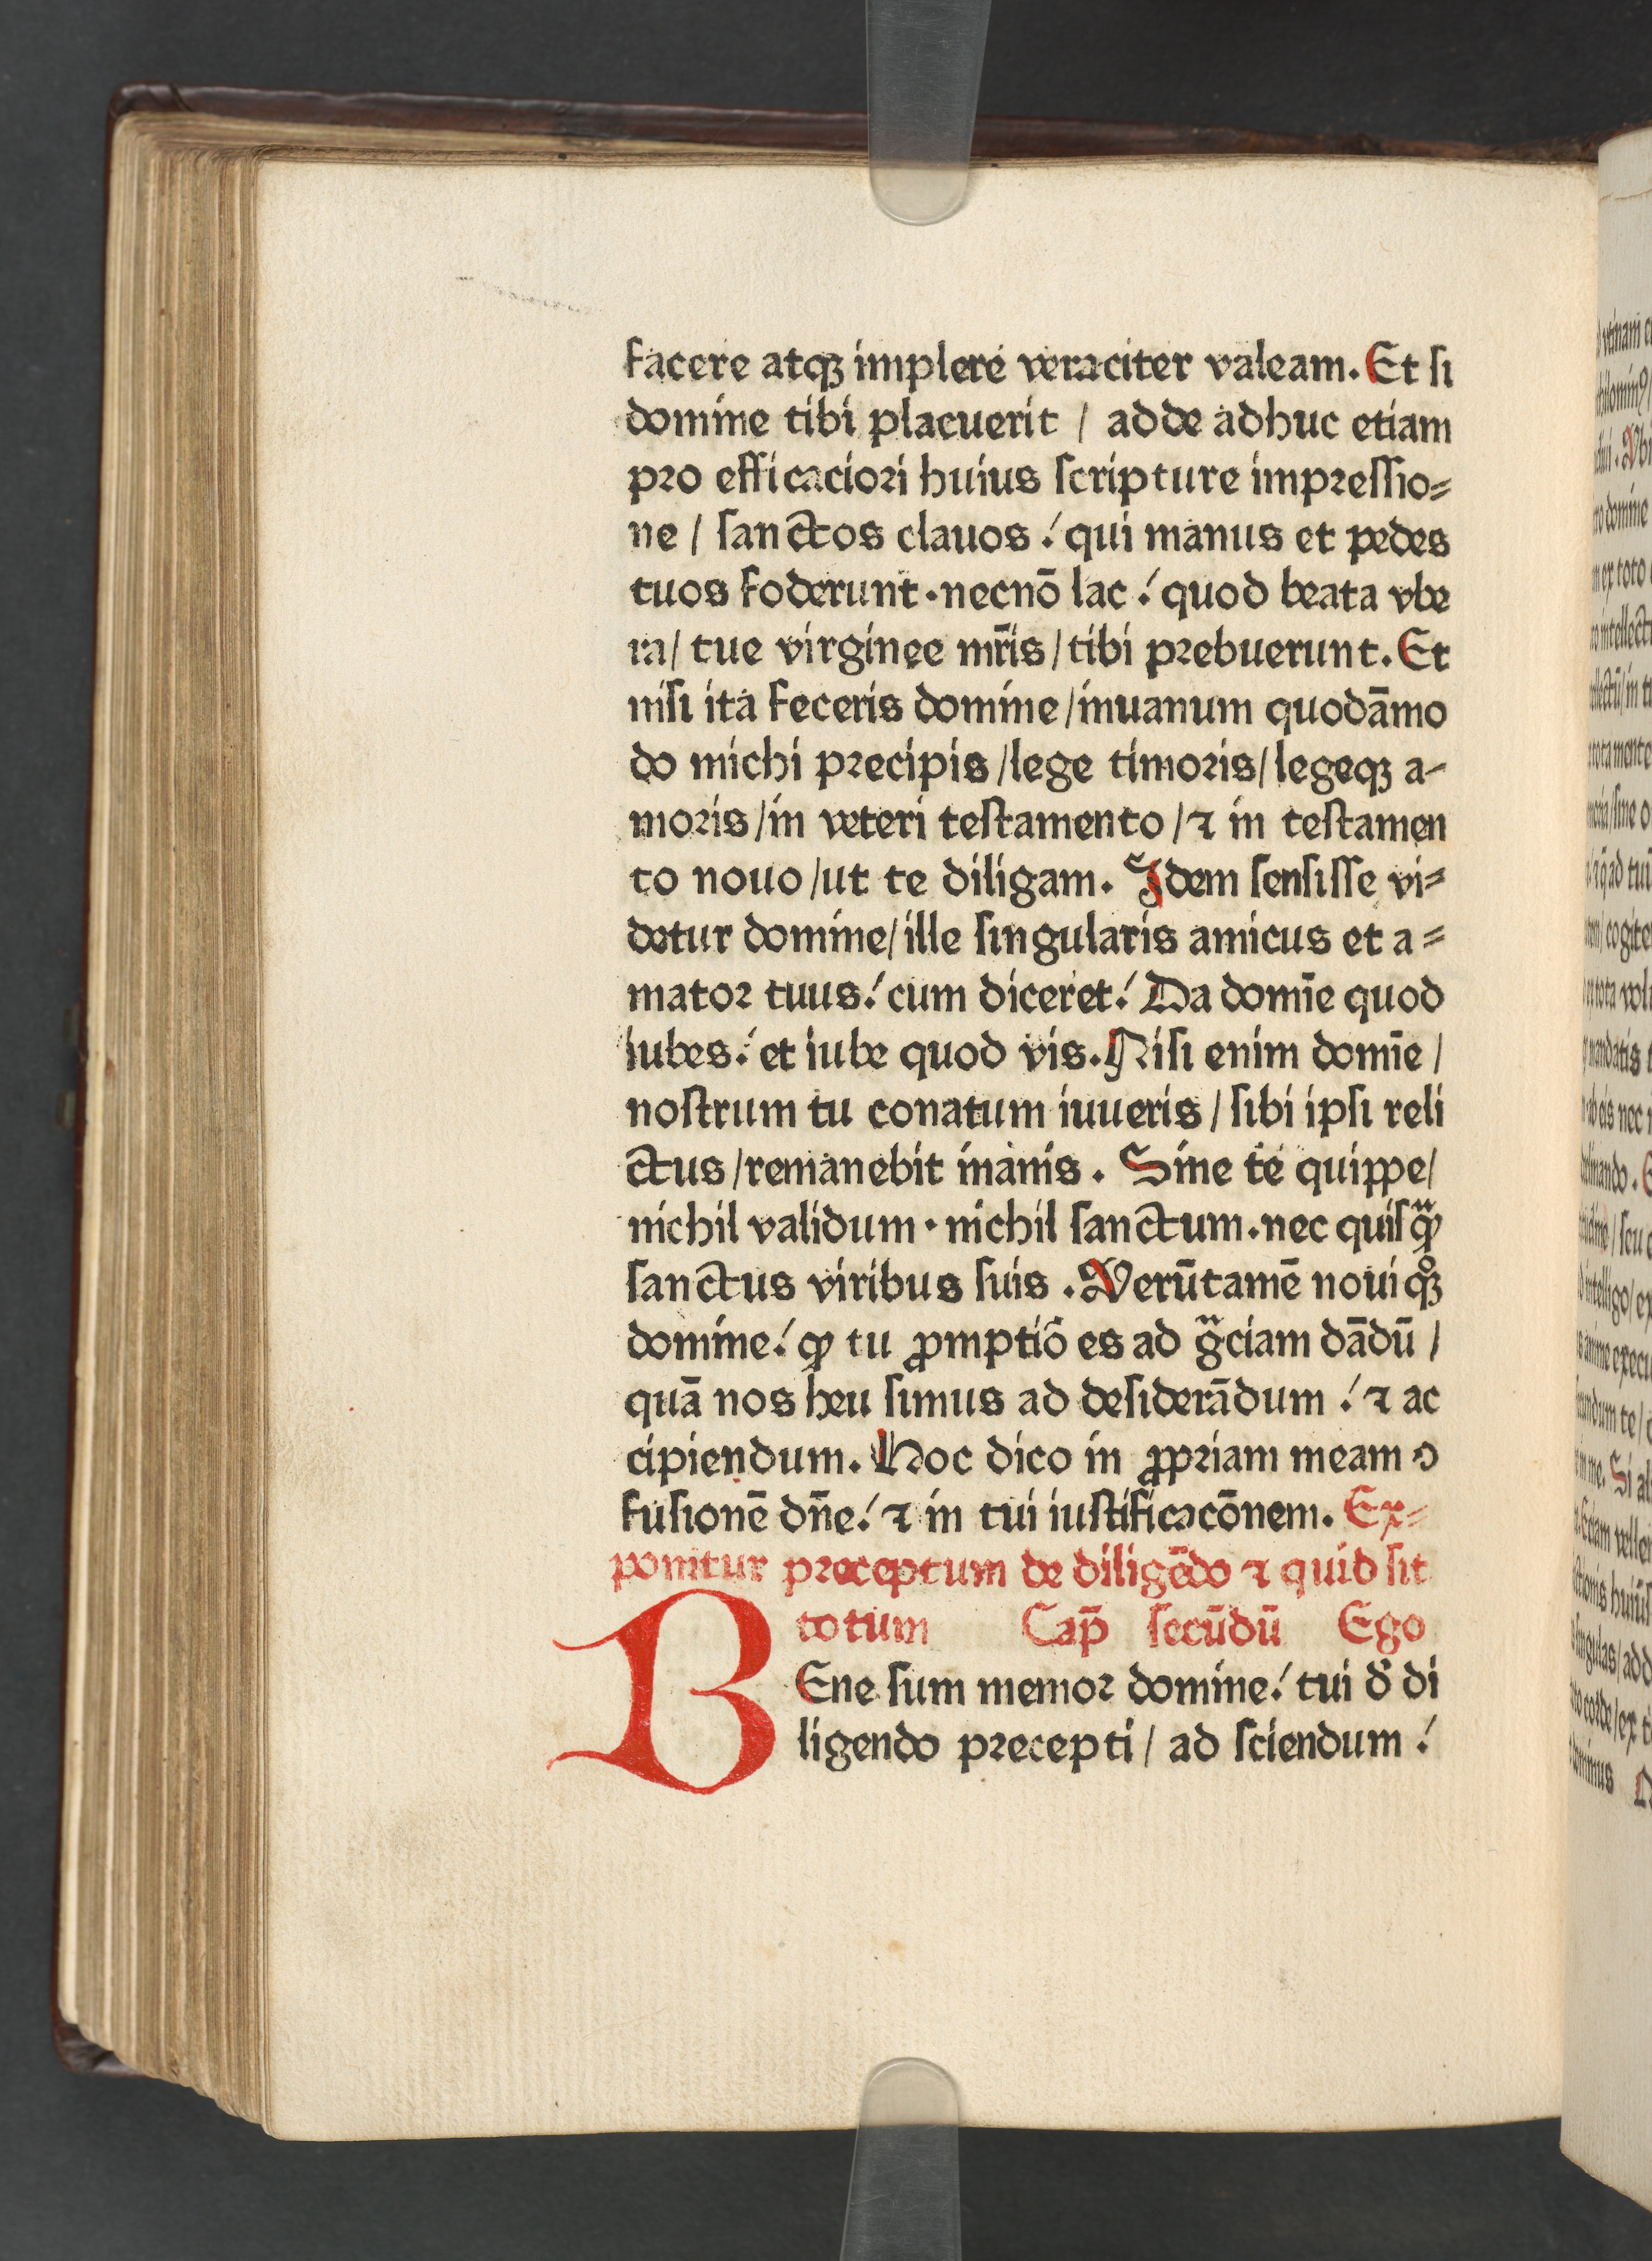 facere atqꝫ implere veraciter valeam. Et ſi
domine tibi placuerit / adde adhuc etiam
pro efficaciori huius ſcripture impreſſio⸗
ne / ſanctos clauos ! qui manus et pedes
tuos foderunt · necnō lac ! quod beata vbe
ra / tue virginee mr̄is / tibi prebuerunt. Et
niſi ita feceris domine / inuanum quodāmo
do michi precipis / lege timoris / legeqꝫ a-
moris / in veteri teſtamento / ⁊ in teſtamen
to nouo / ut te diligam. Idem ſenſiſſe vi⸗
detur domine / ille ſingularis amicus et a⸗
mator tuus ! cum diceret ! Da domīe quod
iubes ! et iube quod vis. Niſi enim domīe /
noſtrum tu conatum iuueris / ſibi ipſi reli
ctus / remanebit inanis. Sine te quippe /
nichil validum · nichil ſanctum. nec quiſꝙᷓ
ſanctus viribus ſuis. Verūtamē noui qͦꝫ
domine ! ꝙ tu ꝓmptiō es ad gᷓciam dādū /
quā nos heu ſimus ad deſiderādum ! ⁊ ac
cipiendum. Hoc dico in ꝓpriam meam ↄ
fuſionē dn̄e ! ⁊ in tui iuſtificacōnem. Ex⸗
ponitur preceptum de diligēdo ⁊ quid ſit
totum Cap̄ ſecūdū Ego
BEne ſum memor domine ! tui đ di
ligendo precepti / ad ſciendum !